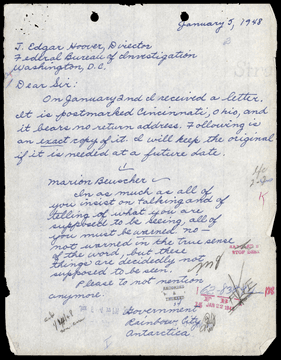 January 5, 1948
J. Edgar Hoover, Director
Federal Bureau of Investigation
Washington, D.C.
Dear Sir:
On January 2nd I received a letter.
It is postmarked Cincinnati, Ohio, and
it bears no return address. Following is
an exact copy of it. I will keep the original
if it is needed at a future date.
Marion
In as much as all of
you insist on talking and of
telling of what you are
supposed to be seeing, all of
you must be warned. no –
not warned in the true sense
of the word, but these
things are decidedly not
supposed to be seen.
Please to not mention
anymore.
RECORDED
62-83894
Government
Rainbow City
Antarctica